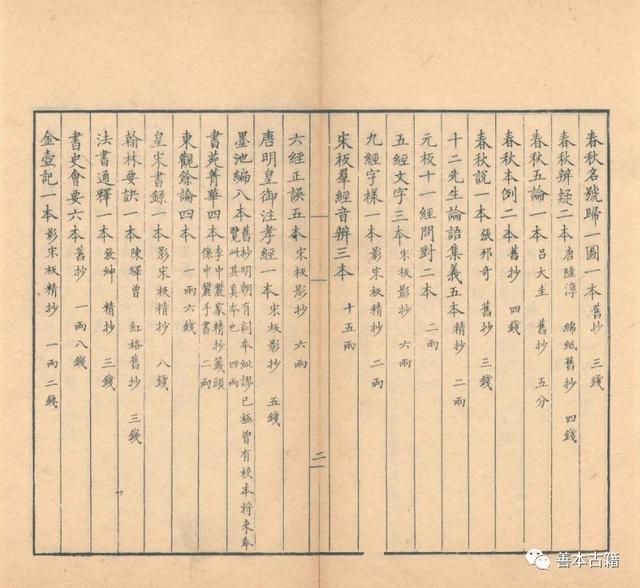 春秋名號歸一圖一本 舊抄 三錢
春秋辨疑二本 唐陸淳 綿紙舊抄 四錢
春秋五論一本 呂大圭 舊抄 五分
春秋本例二本 舊抄 四錢
春秋說一本 張邦奇 舊抄 三錢
十二先生論語集義五本 精抄 二兩
元板十一經問對二本 二兩
五經文字三本 宋板影抄 六兩
九經字樣一本 影宋板精抄 二兩
宋板羣經音辨三本 十五兩
二
六經正誤五本 宋板影抄 六兩
唐明皇御注孝經一本 宋板影抄 五錢
墨池編八本 舊抄明朝有刻本紕謬已極曾有校本將來奉
覽此其真本也 四兩
書苑菁華四本 李中麓家精抄籤頭
係中麓手書 二兩
東觀餘論四本 一兩六錢
皇宋書錄一本 影宋板精抄 八錢
翰林要訣一本 陳繹曾 紅格舊抄 三錢
法書通釋一本 張紳 精抄 三錢
書史會要六本 舊抄 一兩八錢
金壺記一本 影宋板精抄 一兩二錢
善本古籍